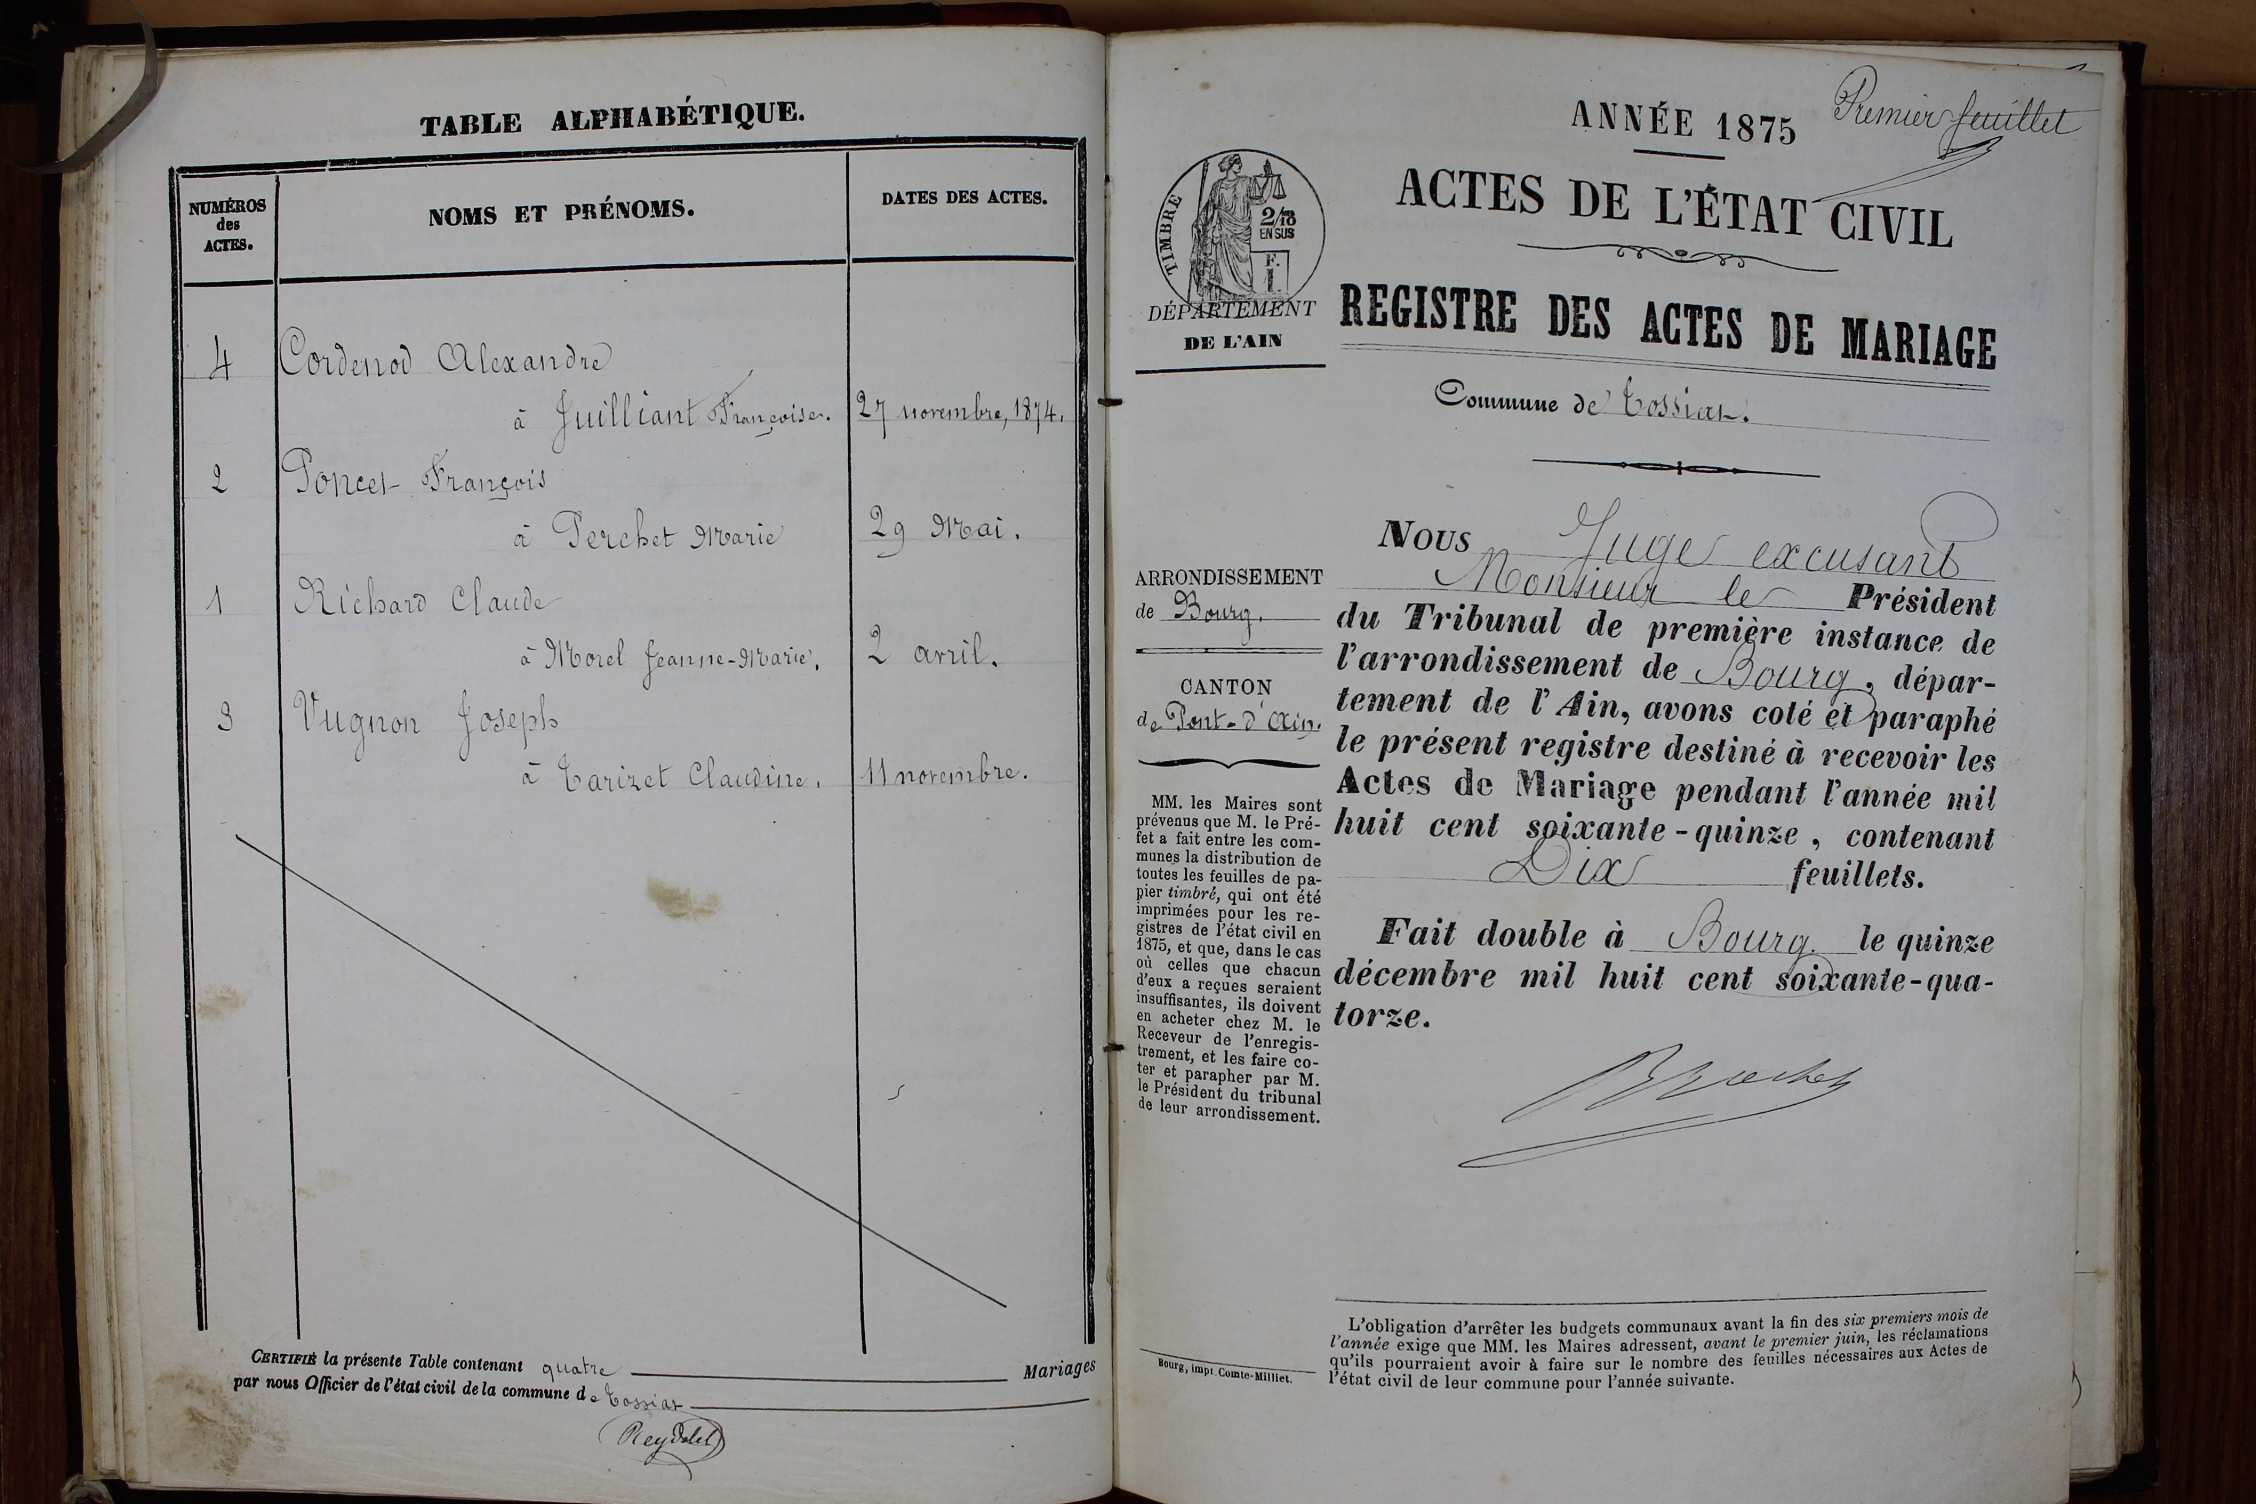 TABLE ALPHABÉTIQUE.
NUMÉROS
des
ACTES.
NOMS ET PRÉNOMS.
DATES DES ACTES.
4 Cordenod Alexandre
à Juilliant Françoise. 27 novembre, 1874.
2 Poncet François
à Perchet Marie 29 Mai.
1 Richard Claude
à Morel Jeanne-Marie. 2 avril.
3 Vugnon Joseph
à Tarizet Claudine. 11 novembre.
CERTIFIÉ la présente Table contenant quatre Mariages
par nous Officier de l'état civil de la commune de Tossiat
Reydelet
Premier feuillet
ANNÉE 1875
ACTES DE L'ÉTAT CIVIL
TIMBRE
2/10
EN SUS
F.
1
DÉPARTEMENT
DE L'AIN
REGISTRE DES ACTES DE MARIAGE
Commune de Tossiat.
ARRONDISSEMENT
de Bourg.
CANTON
de Pont-d'Ain.
MM. les Maires sont
prévenus que M. le Pré-
fet a fait entre les com-
munes la distribution de
toutes les feuilles de pa-
pier timbré, qui ont été
imprimées pour les re-
gistres de l'état civil en
1875, et que, dans le cas
où celles que chacun
d'eux a reçues seraient
insuffisantes, ils doivent
en acheter chez M. le
Receveur de l'enregis-
trement, et les faire co-
ter et parapher par M.
le Président du tribunal
de leur arrondissement.
Bourg, impr. Comte-Milliet.
NOUS Juge excusant
Monsieur le Président
du Tribunal de première instance de
l'arrondissement de Bourg, dépar-
tement de l'Ain, avons coté et paraphé
le présent registre destiné à recevoir les
Actes de Mariage pendant l'année mil
huit cent soixante-quinze, contenant
Dix feuillets.
Fait double à Bourg le quinze
décembre mil huit cent soixante-qua-
torze.
L'obligation d'arrêter les budgets communaux avant la fin des six premiers mois de
l'année exige que MM. les Maires adressent, avant le premier juin, les réclamations
qu'ils pourraient avoir à faire sur le nombre des feuilles nécessaires aux Actes de
l'état civil de leur commune pour l'année suivante.